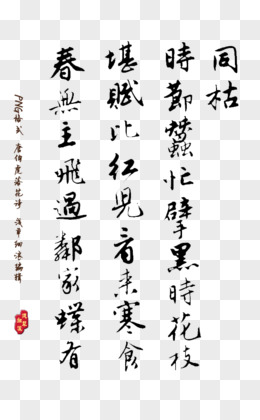 同枯
時節蠶忙擘黑時花枝
堪賦比紅兒看來寒食
春無主飛過鄰家蝶有
PNG格式 唐伯虎落花诗 编辑